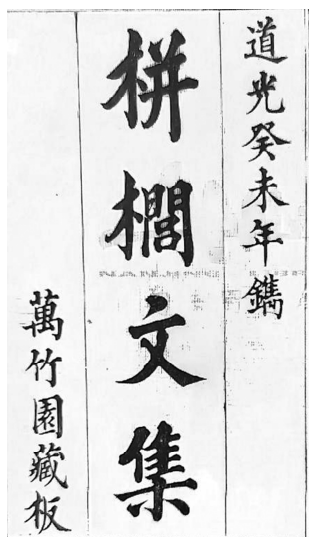 道光癸未年鐫
栟櫚文集
萬竹園藏板